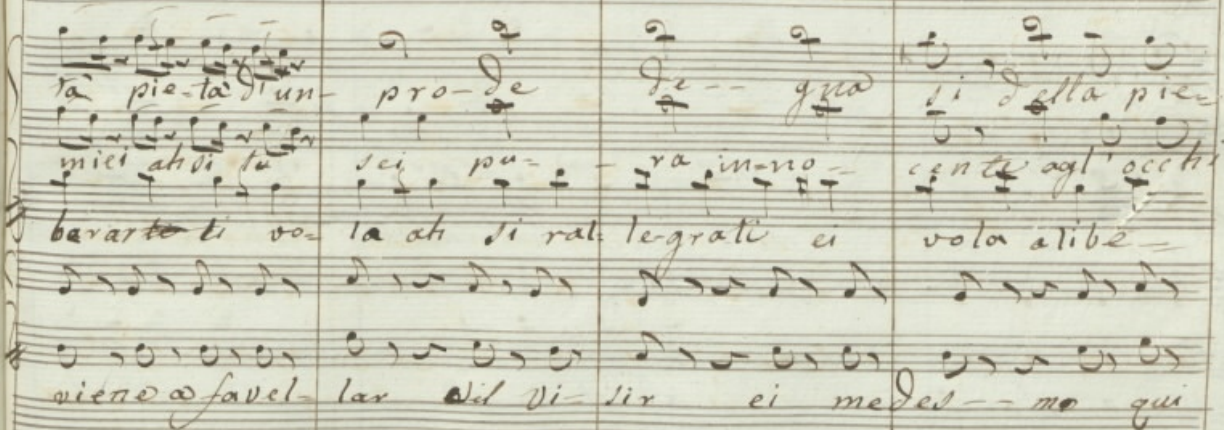 rà pie-tà d'un- pro-de de-- gna si della pie=
miei ah si tu sei pu- - ra in-no-- cente agl' occhi
berarte ti vo= la ah si ral- le-grati ei vola a libe-
viene a favel- lar il Vi- sir ei medes-- mo qui